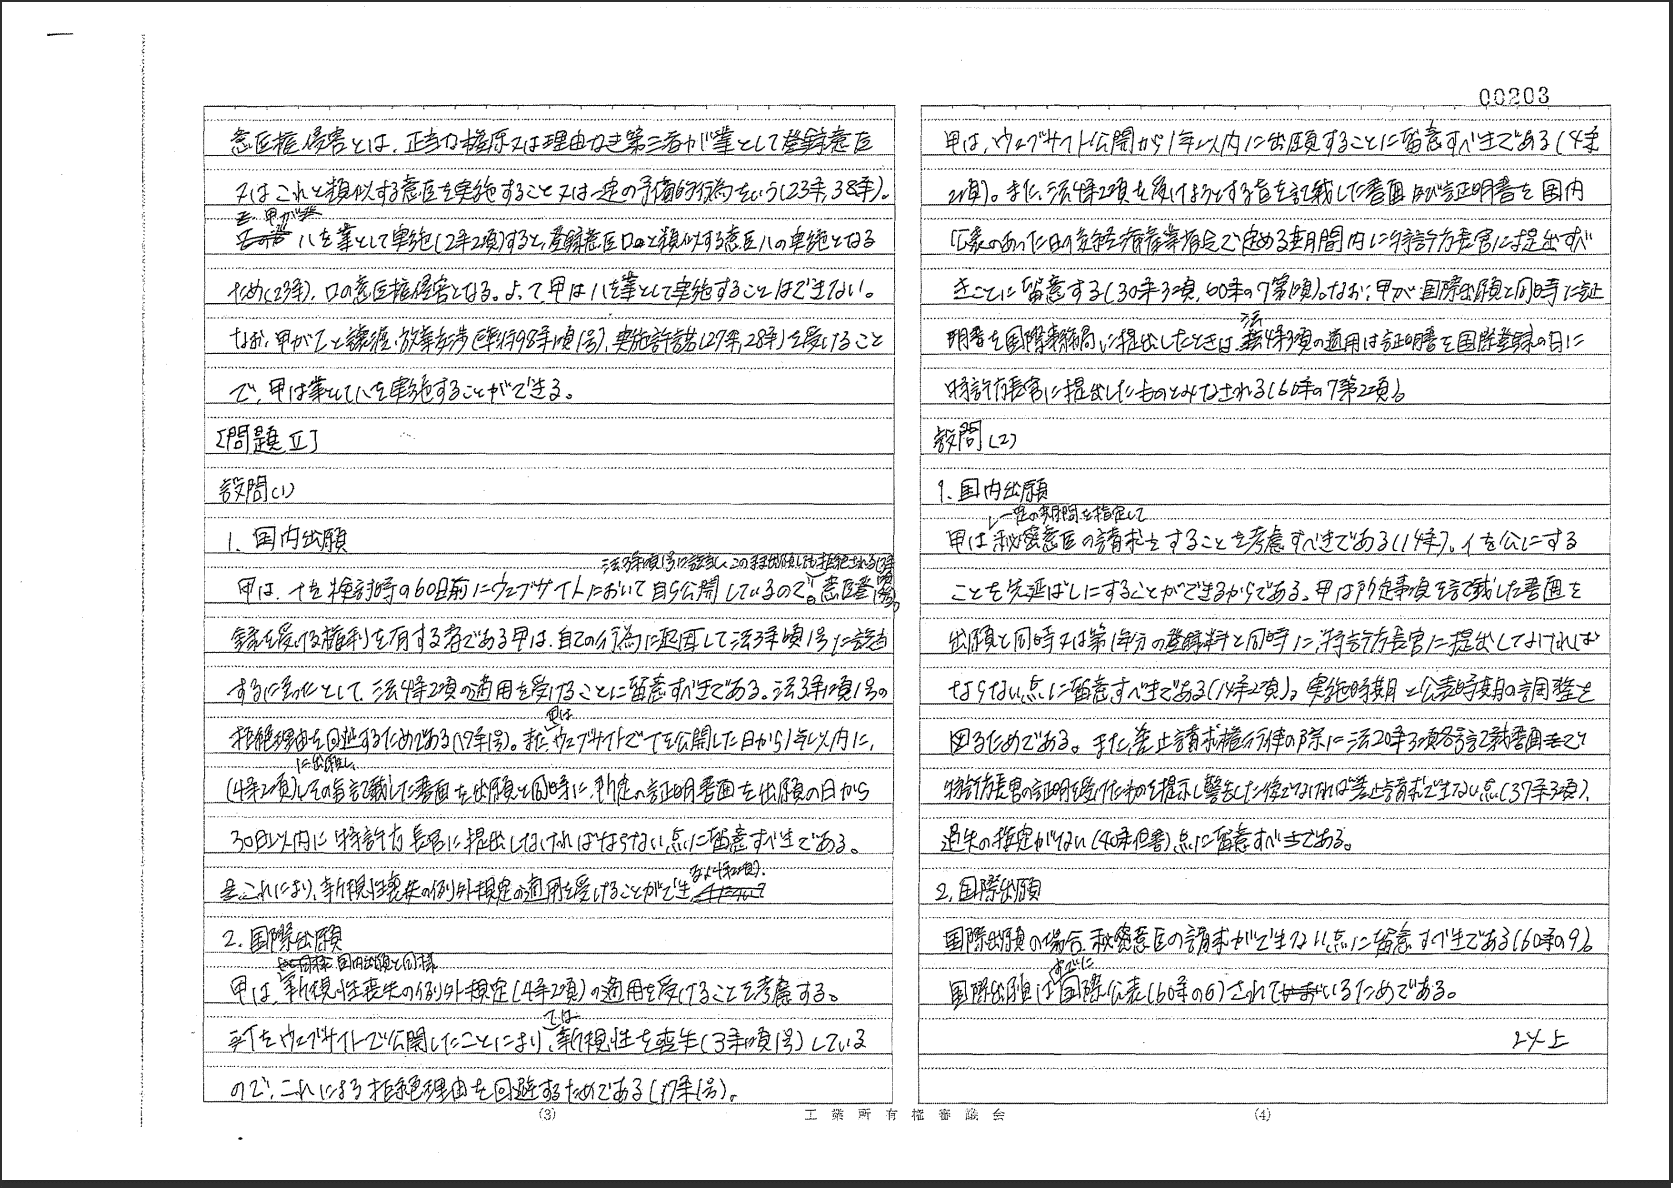 00203
意匠権侵害とは、正当な権原又は理由なき第三者が業として登録意匠
又はこれと類似する意匠を実施すること又は一定の予備的行為をいう(23条,38条)。
甲が業
ハを業として実施(2条2項)すると、登録意匠ロと類似する意匠ハの実施となる
ため(23条)、ロの意匠権侵害となる。よって甲はハを業として実施することはできない。
なお、甲が乙と譲渡・放棄交渉(準特98条1項1号)、実施許諾(27条,28条)を受けること
で、甲は業としてハを実施することができる。
[問題Ⅱ]
設問(1)
1. 国内出願
法3条1項1号に該当し、このまま出願しても拒絶される(17条1号)。
甲は、イを検討時の60日前にウェブサイトにおいて自ら公開しているので 意匠登
録を受ける権利を有する者である甲は、自己の行為に起因して法3条1項1号に該当
するに至ったとして、法4条2項の適用を受けることに留意すべきである。法3条1項1号の
拒絶理由を回避するためである(17条1号)。また、甲はウェブサイトでイを公開した日から1年以内に、
に出願し
(4条2項)、その旨記載した書面を出願と同時に、所定の証明書面を出願の日から
30日以内に特許庁長官に提出しなければならない点に留意すべきである。
これにより、新規性喪失の例外規定の適用を受けることができ
2. 国際出願
国内出願と同様
甲は、新規性喪失の例外規定(4条2項)の適用を受けることを考慮する。
イをウェブサイトで公開したことにより、では新規性を喪失(3条1項1号)している
ので、これによる拒絶理由を回避するためである(17条1号)。
(3)
甲は、ウェブサイト公開から1年以内に出願することに留意すべきである(4条
2項)。また、法4条2項を受けようとする旨を記載した書面及び証明書を国内
公表のあった日の後経済産業省令で定める期間内に特許庁長官に提出すべ
きことに留意する(30条3項,60条の7第1項)。なお、甲が国際出願と同時に証
明書を国際事務局に提出したときは、法4条3項の適用は証明書を国際登録の日に
特許庁長官に提出したものとみなされる(60条の7第2項)。
設問(2)
1. 国内出願
一定の期間を指定して
甲は秘密意匠の請求をすることを考慮すべきである(14条)。イを公にする
ことを先延ばしにすることができるからである。甲は所定事項を記載した書面を
出願と同時又は第1年分の登録料と同時に、特許庁長官に提出しなければ
ならない点に留意すべきである(14条2項)。実施時期と公表時期の調整を
図るためである。また、差止請求権行使の際に法20条3項各号記載書面
特許庁長官の証明を受けたものを提示し警告した後でなければ差止請求できない点(37条3項)、
過失の推定がない(40条但書)点に留意すべきである。
2. 国際出願
国際出願の場合、秘密意匠の請求ができない点に留意すべきである(60条の9)。
国際出願はすでに国際公表(60条の6)されているためである。
以上
工業所有権審議会
(4)